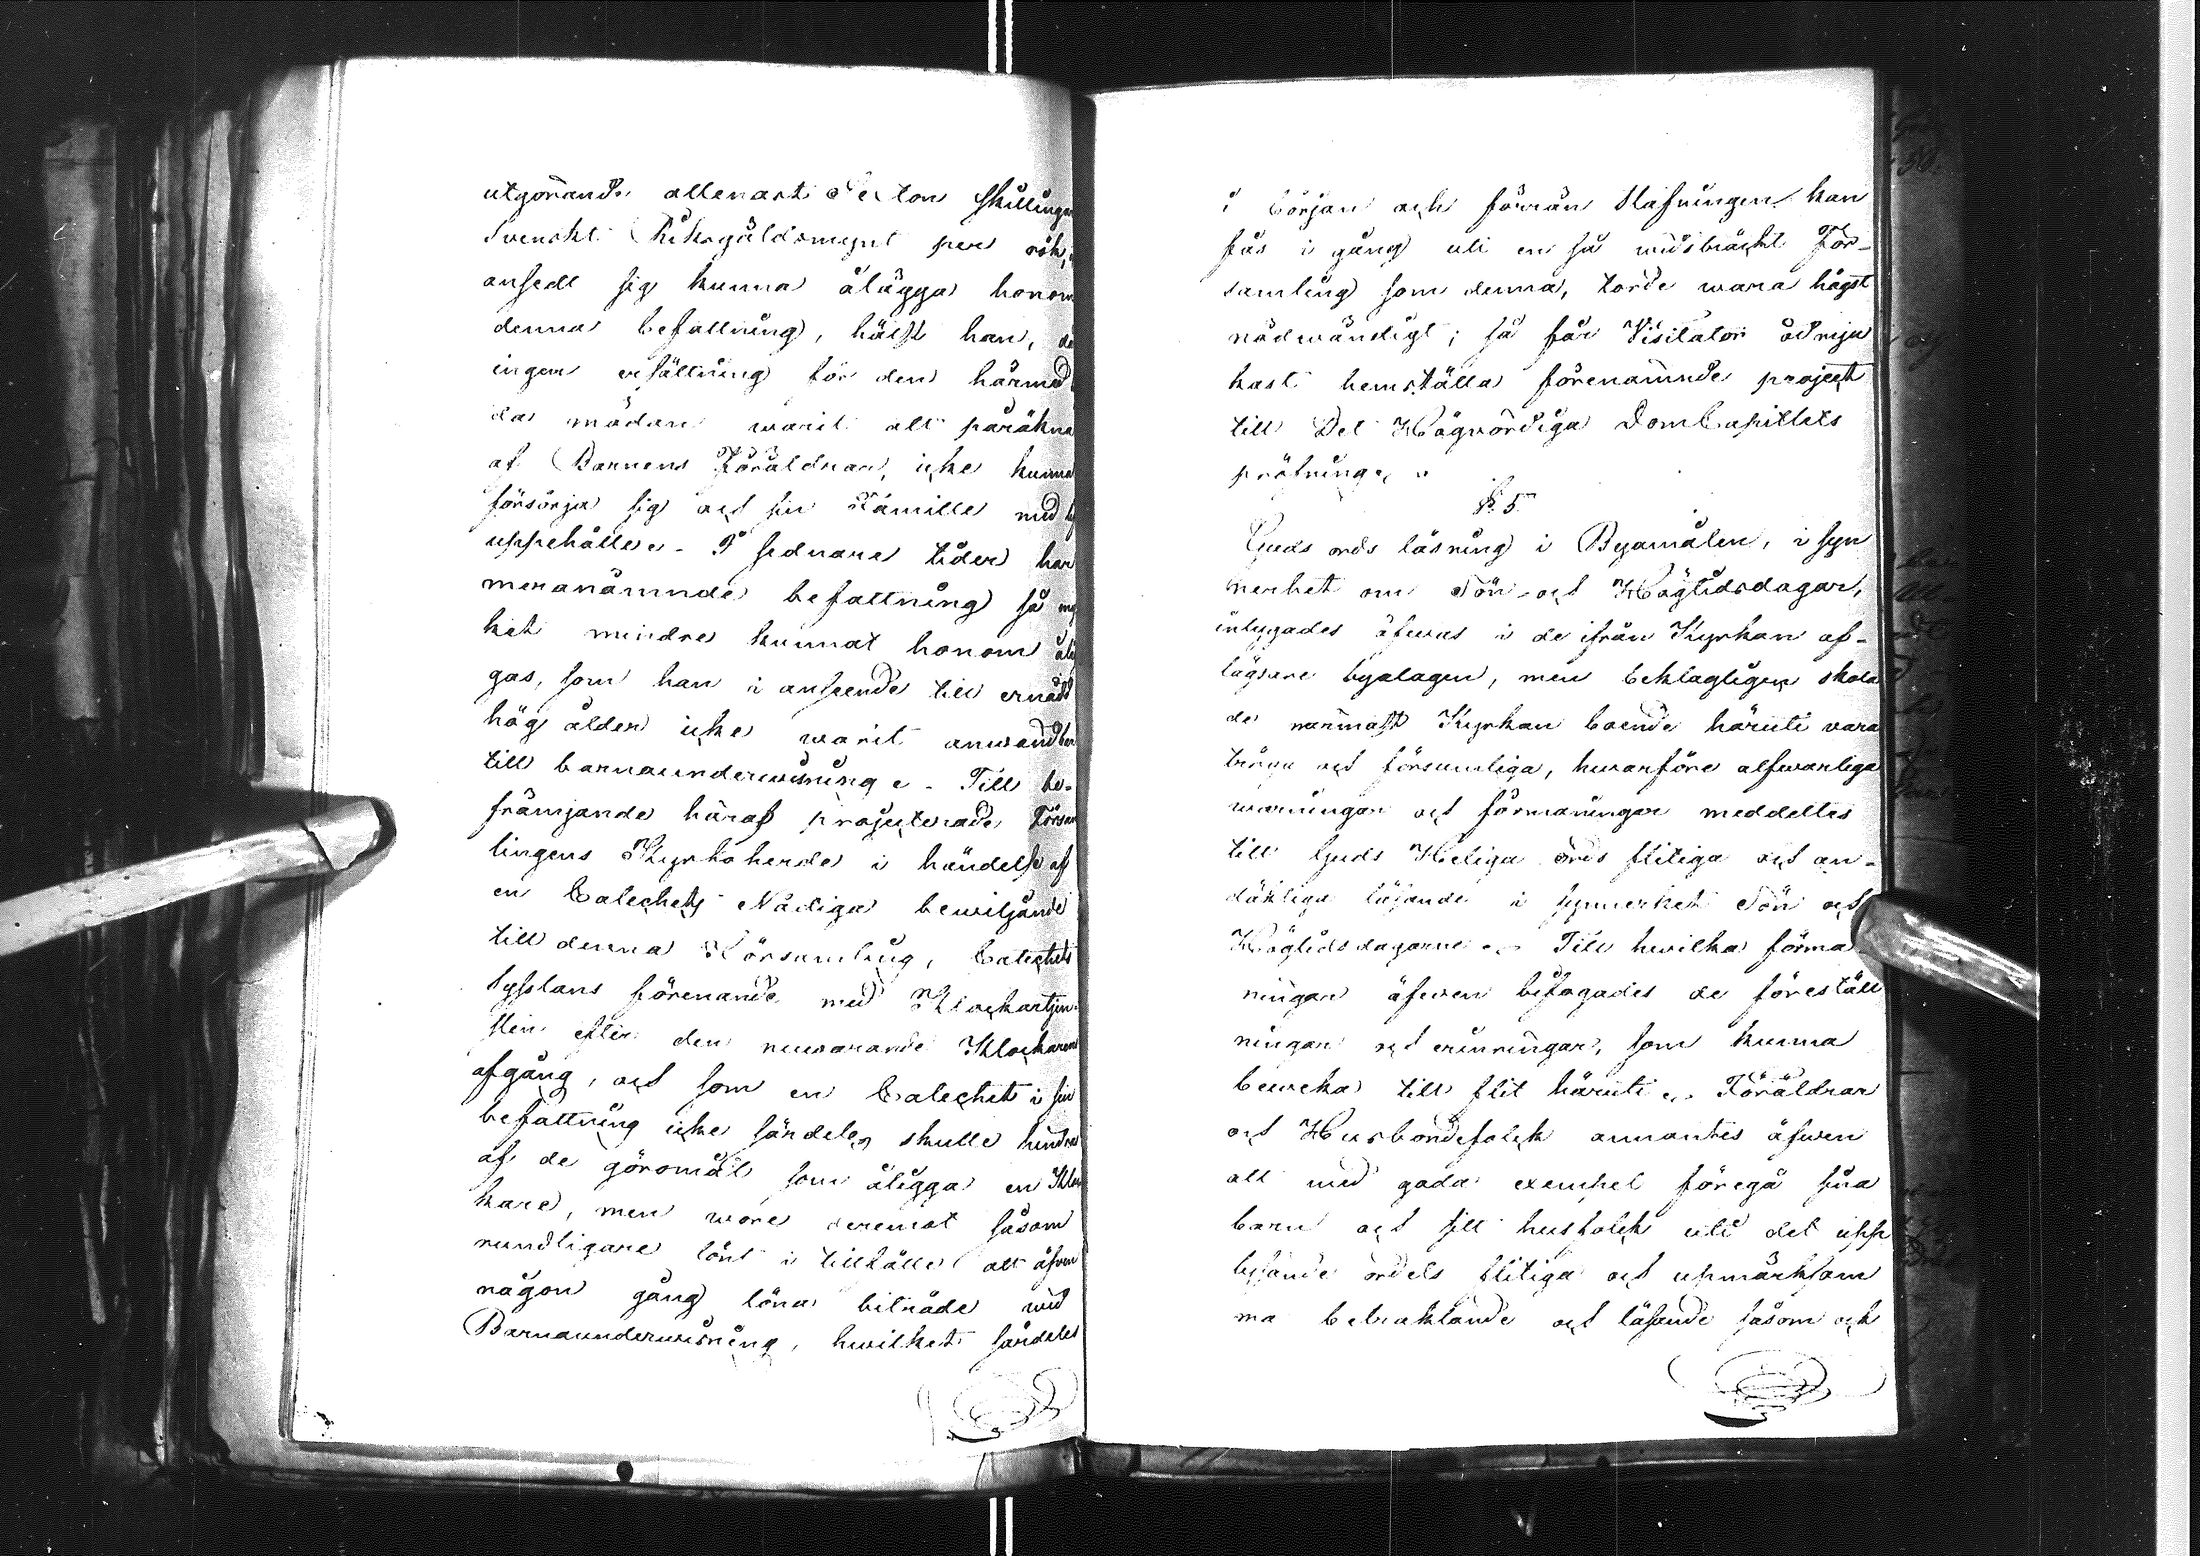 utgörande allenast Sexton Skillingar
Svenskt Riksgäldsmynt per rök,
ansedt sig kunna ålägga honom
denna befattning, hälst han, då
ingen ersättning för den härmed
da mödan warit att påräkna
af Barnens Föräldrar, icke kunna
försörja sig och sin Familie med
uppehälle. I sednare tider har
meranämnde befattning så myc
ket mindre kunnat honom åläg
gas, som han i anseende till ernådd
hög ålder icke warit anwendbar
till barnaunderwisning. Till be-
främjande häraf projecterade Försam
lingens Kyrkoherde i händelse af
en Catechets Nådiga bewiljande
till denna Församling, Catechets
sysslans förenande med Klockartjen
sten efter den nuwarande Klockarens
afgång, och som en Catechet i sin
befattning icke särdeles skulle hindras
af de göromål som åligga en Kloc
kare, men wore deremot såsom
rundligare lönt i tillfälle att äfven
någon gång löna biträde wid
Barnaunderwisning, hwilket särdeles
i början och förrän Stafningen kan
fås i gång uti en så widsträckt För-
samling som denna, torde wara högst
nödwändigt; så får Visitator ödmju
kast hemställa förenämnde project
till Det Högwördiga DomCapitlets
pröfning.
§. 5.
Guds ords läsning i Byamålen, i syn
nerhet om Sön- och Högtidsdagar,
intygades äfwen i de ifrån Kyrkan af-
lägsare byalagen, men beklagligen skola
de närmast Kyrkan boende häruti vara
tröga och försumliga, hwarföre alfwarliga
warningar och förmaningar meddeltes
till Guds Heliga ords flitiga och an-
däktiga läsande i synnerhet Sön och
Högtidsdagarne. Till hwilka förma
ningar äfwen bifogades de föreställ
ningar och erinringar, som kunna
beweka till flit häruti. Föräldrar
och Husbondefolck anmantes äfwen
att med goda exempel föregå sina
barn och sitt husfolck uti det upp
lysande ordets flitiga och upmärksam
ma betraktande och läsande såsom ock